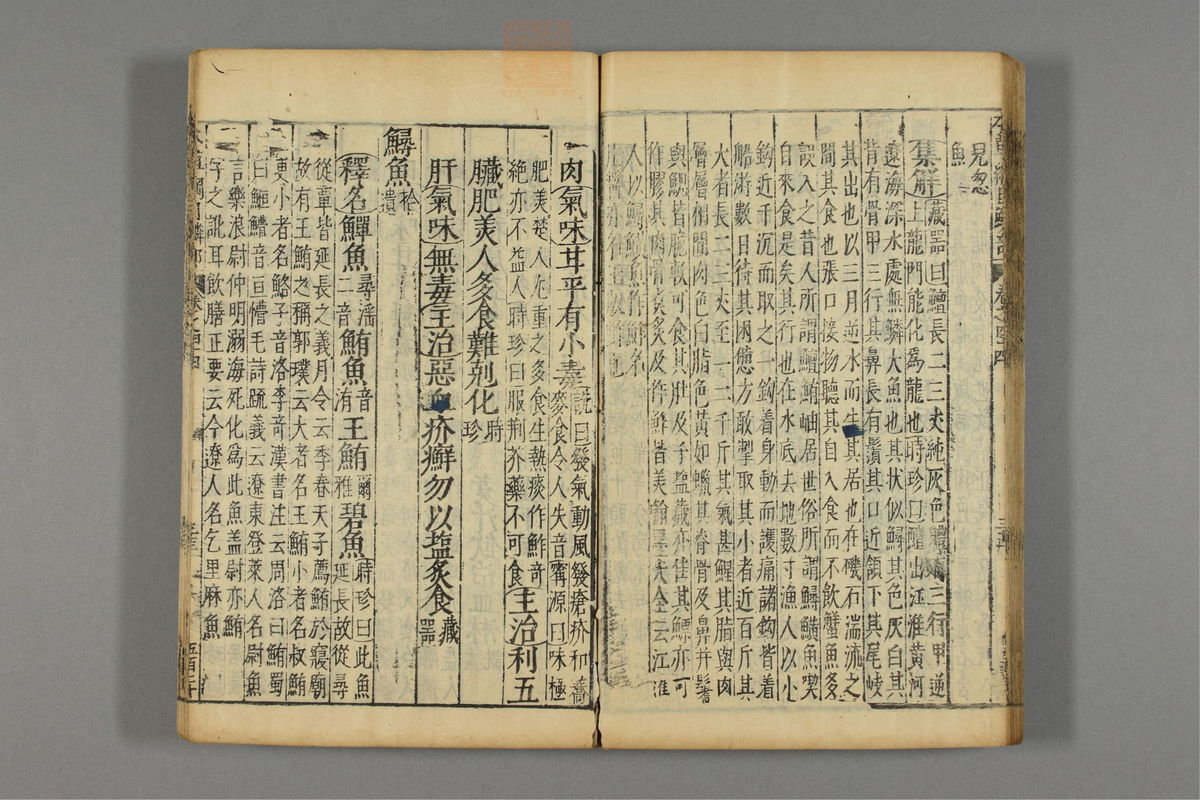 見忽
魚
集解藏器曰鱣長二三丈純灰色體有三行甲逆
上龍門能化為龍也時珍曰鱣出江淮黃河
遼海深水處無鱗大魚也其狀似鱘其色灰白其
背有骨甲三行其鼻長有鬚其口近頷下其尾岐
其出也以三月逆水而生其居也在磯石湍流之
間其食也張口接物聽其自入食而不飲蟹魚多
誤入之昔人所謂鱣鮪岫居世俗所謂鱘鱑魚喫
自來食是矣其行也在水底去地數寸漁人以小
鉤近千沉而取之一鉤着身動而護痛諸鉤皆着
船游數日待其困憊方敢掣取其小者近百斤其
大者長二三丈至一二千斤其氣甚腥其脂與肉
層層相間肉色白脂色黃如蠟其脊骨及鼻并鬐
與鰓皆脆軟可食其肚及子盐藏亦佳其鰾亦可
作膠其肉骨煮炙及作鮓皆美翰墨大全云江淮
人以鱘鰉魚作鮓名
肉氣味甘平有小毒詵曰發氣動風發瘡疥和蕎
麥食令人失音宗源曰味極
肥美楚人尤重之多食生熱痰作鮓奇
絶亦不益人時珍曰服荆芥藥不可食主治利五
臟肥美人多食難剋化時珍
肝氣味無毒主治惡血疥癬勿以盐炙食藏器
鱘魚拾遺
釋名鱓魚尋淫二音鮪魚音洧王鮪爾雅碧魚時珍曰此魚
延長故從尋
從覃皆延長之義月令云季春天子薦鮪於寢廟
故有王鮪之稱郭璞云大者名王鮪小者名叔鮪
更小者名鮥子音洛李奇漢書注云周洛曰鮪蜀
曰䱭鰽音亘懵毛詩疏義云遼東登萊人名尉魚
言樂浪尉仲明溺海死化爲此魚盖尉亦鮪
字之訛耳飲膳正要云今遼人名乞里麻魚